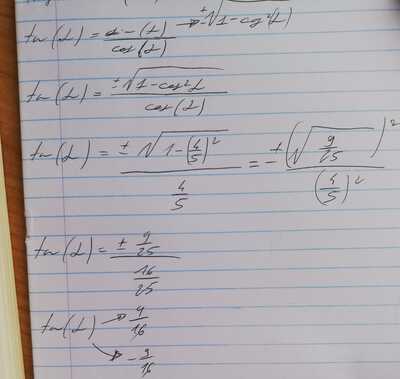 tan(α) = (α) / cos(α) → ±√1-cos²(α)
tan(α) = ±√1-cos²α / cos(α)
tan(α) = ±√1-(4/5)² / 4/5 = ±(√9/25)² / (4/5)²
tan(α) = ± 9/25 / 16/25
tan(α) → 9/16
→ -9/16